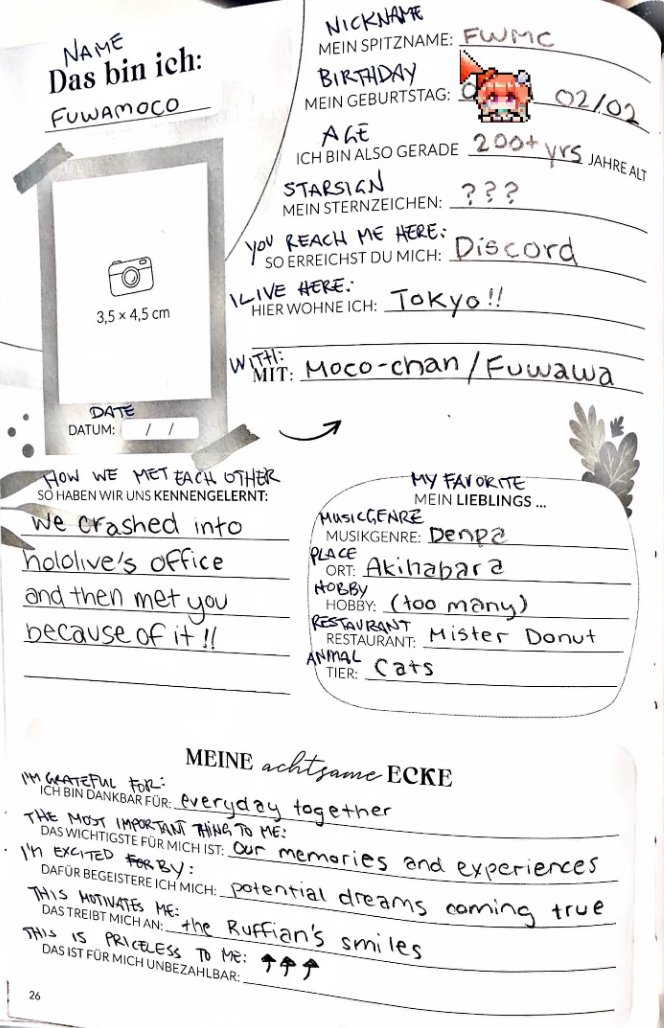 NAME
Das bin ich:
FUWAMOCO
3,5 × 4,5 cm
DATE
DATUM: / /
NICKNAME
MEIN SPITZNAME: FWMC
BIRTHDAY
MEIN GEBURTSTAG: 02/02
AGE
ICH BIN ALSO GERADE 200+ yrs JAHRE ALT
STARSIGN
MEIN STERNZEICHEN: ???
YOU REACH ME HERE:
SO ERREICHST DU MICH: Discord
I LIVE HERE:
HIER WOHNE ICH: Tokyo!!
WITH:
MIT: Moco-chan / Fuwawa
HOW WE MET EACH OTHER
SO HABEN WIR UNS KENNENGELERNT:
we crashed into
hololive's office
and then met you
because of it!!
MY FAVORITE
MEIN LIEBLINGS ...
MUSICGENRE
MUSIKGENRE: Denpa
PLACE
ORT: Akihabara
HOBBY
HOBBY: (too many)
RESTAURANT
RESTAURANT: Mister Donut
ANIMAL
TIER: Cats
MEINE achtsame ECKE
I'M GRATEFUL FOR:
ICH BIN DANKBAR FÜR: everyday together
THE MOST IMPORTANT THING TO ME:
DAS WICHTIGSTE FÜR MICH IST: our memories and experiences
I'M EXCITED FOR BY:
DAFÜR BEGEISTERE ICH MICH: potential dreams coming true
THIS MOTIVATES ME:
DAS TREIBT MICH AN: the Ruffian's smiles
THIS IS PRICELESS TO ME: ↑↑↑
DAS IST FÜR MICH UNBEZAHLBAR:
26